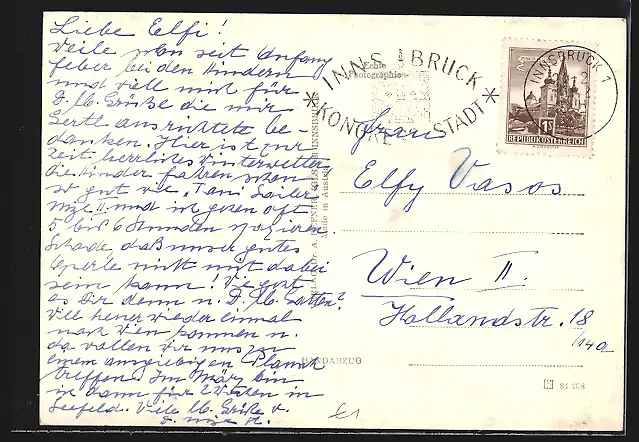 Liebe Elfi!
Weile schon seit Anfang
feber bei den Kindern
und viel mich für
D. lb. Grüße die mir
Gertl ausrichtete be-
danken. Hier ist zur
Zeit herrliches Winterwetter
die Kinder fahren schon
so gut wie "Toni Sailer
II" und ich gehen oft
5 bis 6 Stunden spazieren.
Schade, daß unser gutes
Sperle nicht mit dabei
sein kann! Wie geht
es Dir denn u. D. lb. Gatten?
Will heuer wieder einmal
nach Wien kommen u.
da wollen wir uns zu
einem ausgiebigen Plausch
treffen. Im März bin
ich dann für 2 Wochen in
Seefeld. Viele lb. Grüße v.
Echte
Photographie
INNSBRUCK
KONGRE STADT
INNSBRUCK 1
1 S
REPUBLIK ÖSTERREICH
Made in Austria
Frau
Elfy Vasos
Wien II.
Hollandstr. 18
/14a
HANDABZUG
84 288
£1